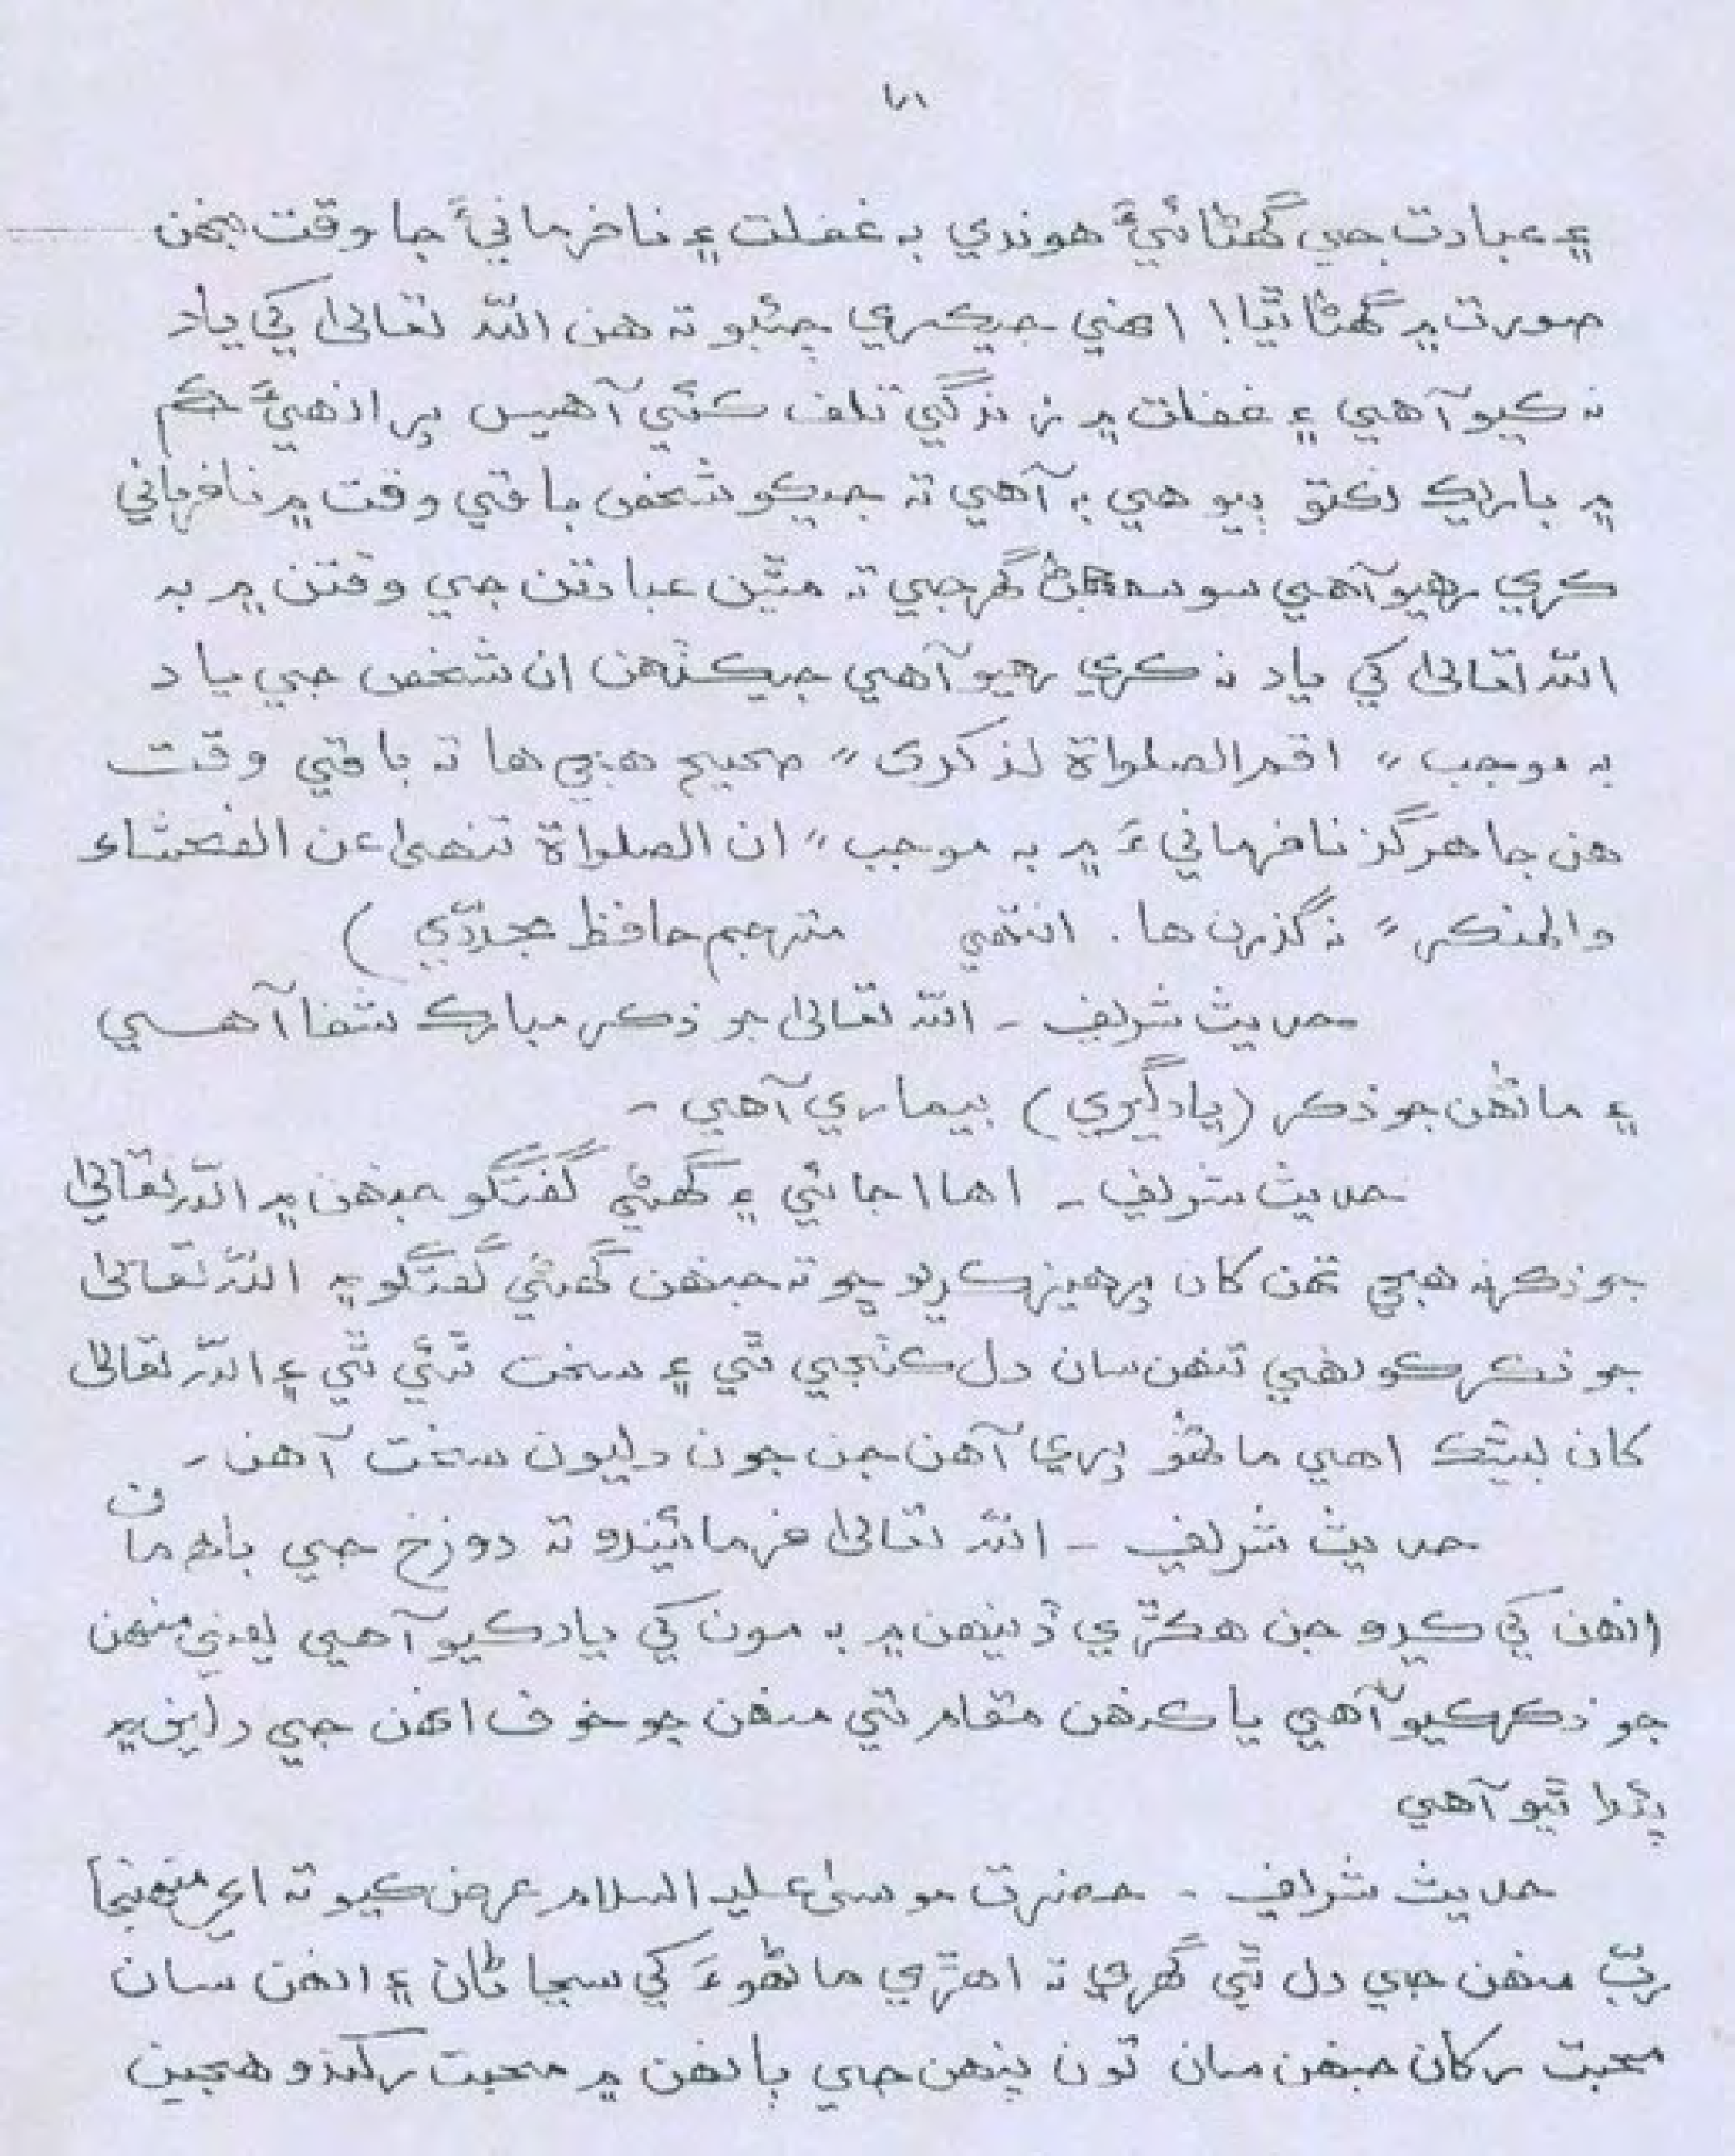 ۽ عبادت جي گهڻائيءَ هوندي به غفلت ۽ نافرمانيءَ جا وقت جنهن
صورت ۾ گهڻا ٿيا! اهڙي جيڪري چئبو ته هن الله تعاليٰ کي ياد
نه ڪيو آهي ۽ غفلت ۾ زندگي تلف ڪئي آهيس پر انهيءَ حڪم
۾ باريڪ نڪتو ٻيو هي به آهي ته جيڪو شخص باقي وقت ۾ نافرماني
ڪري رهيو آهي سو سمجهڻ گهرجي ته مٿين عبادتن جي وقتن ۾ به
الله تعاليٰ کي ياد نه ڪري رهيو آهي جيڪڏهن ان شخص جي ياد
به موجب " اقم الصلواة لذكرى " صحيح هجي ها ته باقي وقت
هن جا هرگز نافرمانيءَ ۾ به موجب " ان الصلواة تنهىٰ عن الفحشاء
والمنكر " نه گذرن ها. انتهي مترجم حافظ مجددي )
حديث شريف - الله تعاليٰ جو ذڪر مبارڪ شفا آهي
۽ ماڻهن جو ذڪر (يادگيري) بيماري آهي -
حديث شريف - اها اجائي ۽ گهڻي گفتگو جنهن ۾ الله تعاليٰ
جو ذڪر نه هجي تنهن کان پرهيز ڪريو ڇو ته جنهن گهڻي گفتگو ۾ الله تعاليٰ
جو ذڪر ڪونهي تنهن سان دل ڪٺجي ٿي ۽ سخت ٿئي ٿي ۽ الله تعاليٰ
کان بيشڪ اهي ماڻهو پري آهن جن جون دليون سخت آهن -
حديث شريف - الله تعاليٰ فرمائيندو ته دوزخ جي باهه مان
انهن کي ڪڍو جن هڪڙي ڏينهن ۾ به مون کي ياد ڪيو آهي يعني منهن
جو ذڪر ڪيو آهي يا ڪنهن مقام تي منهن جو خوف انهن جي دلين ۾
پئدا ٿيو آهي
حديث شريف - حضرت موسيٰ عليه السلام عرض ڪيو ته اي منهنجا
ربّ منهن جي دل ٿي گهري ته اهڙي ماڻهوءَ کي سڃاڻان ۽ انهن سان
محبت رکان جنهن سان تون پنهن جي ٻانهن ۾ محبت رکندو هجين